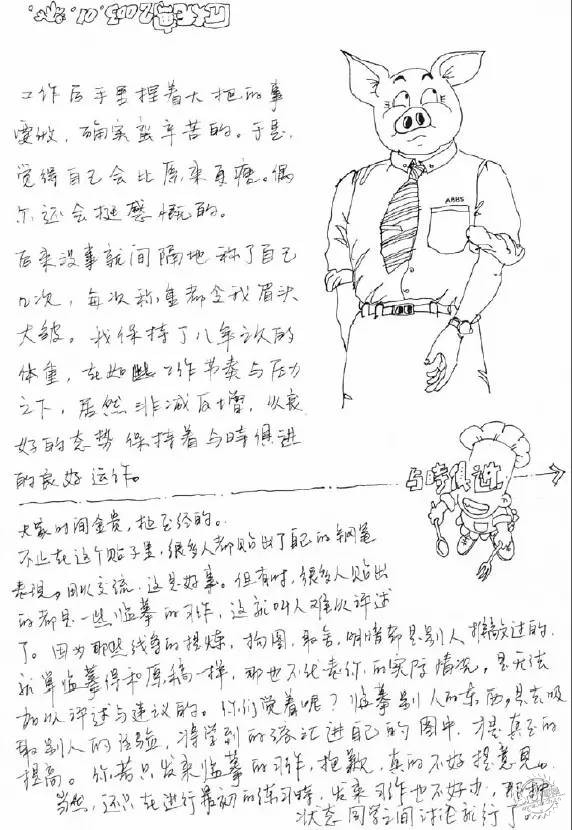 2003.01.
工作后手里捏着大把的事
要做，确实蛮辛苦的。于是，
觉得自己会比原来更瘦。偶
尔还会挺感慨的。
后来没事就间隔地称了自己
几次，每次称重都令我眉头
大皱。我保持了八年之久的
体重，在如此工作节奏与压力
之下，居然非减反增，以良
好的态势保持着与時俱進
的良好运作。
ABBS
与時俱進
大家时间金贵，挺至经的。
不止在这个贴子里，很多人都贴出了自己的钢笔
表现，用以交流，这是好事。但有时，很多人贴出
的都是一些临摹的习作，这就叫人难以评述
了。因为那些线条的提炼，构图，取舍，明暗都是别人推敲过的，
就算临摹得和原稿一样，那也不代表你的实际情况，是无法
加以评述与建议的。你们觉着呢？临摹别人的东西，是去吸
取别人的经验，将学到的语汇进自己的图中，才是真正的
提高。你若只发来临摹的习作，抱歉，真的不好提意见。
当然，还只在进行最初的练习時，发来习作也不好办，那种
状态同学之间讨论就行了。